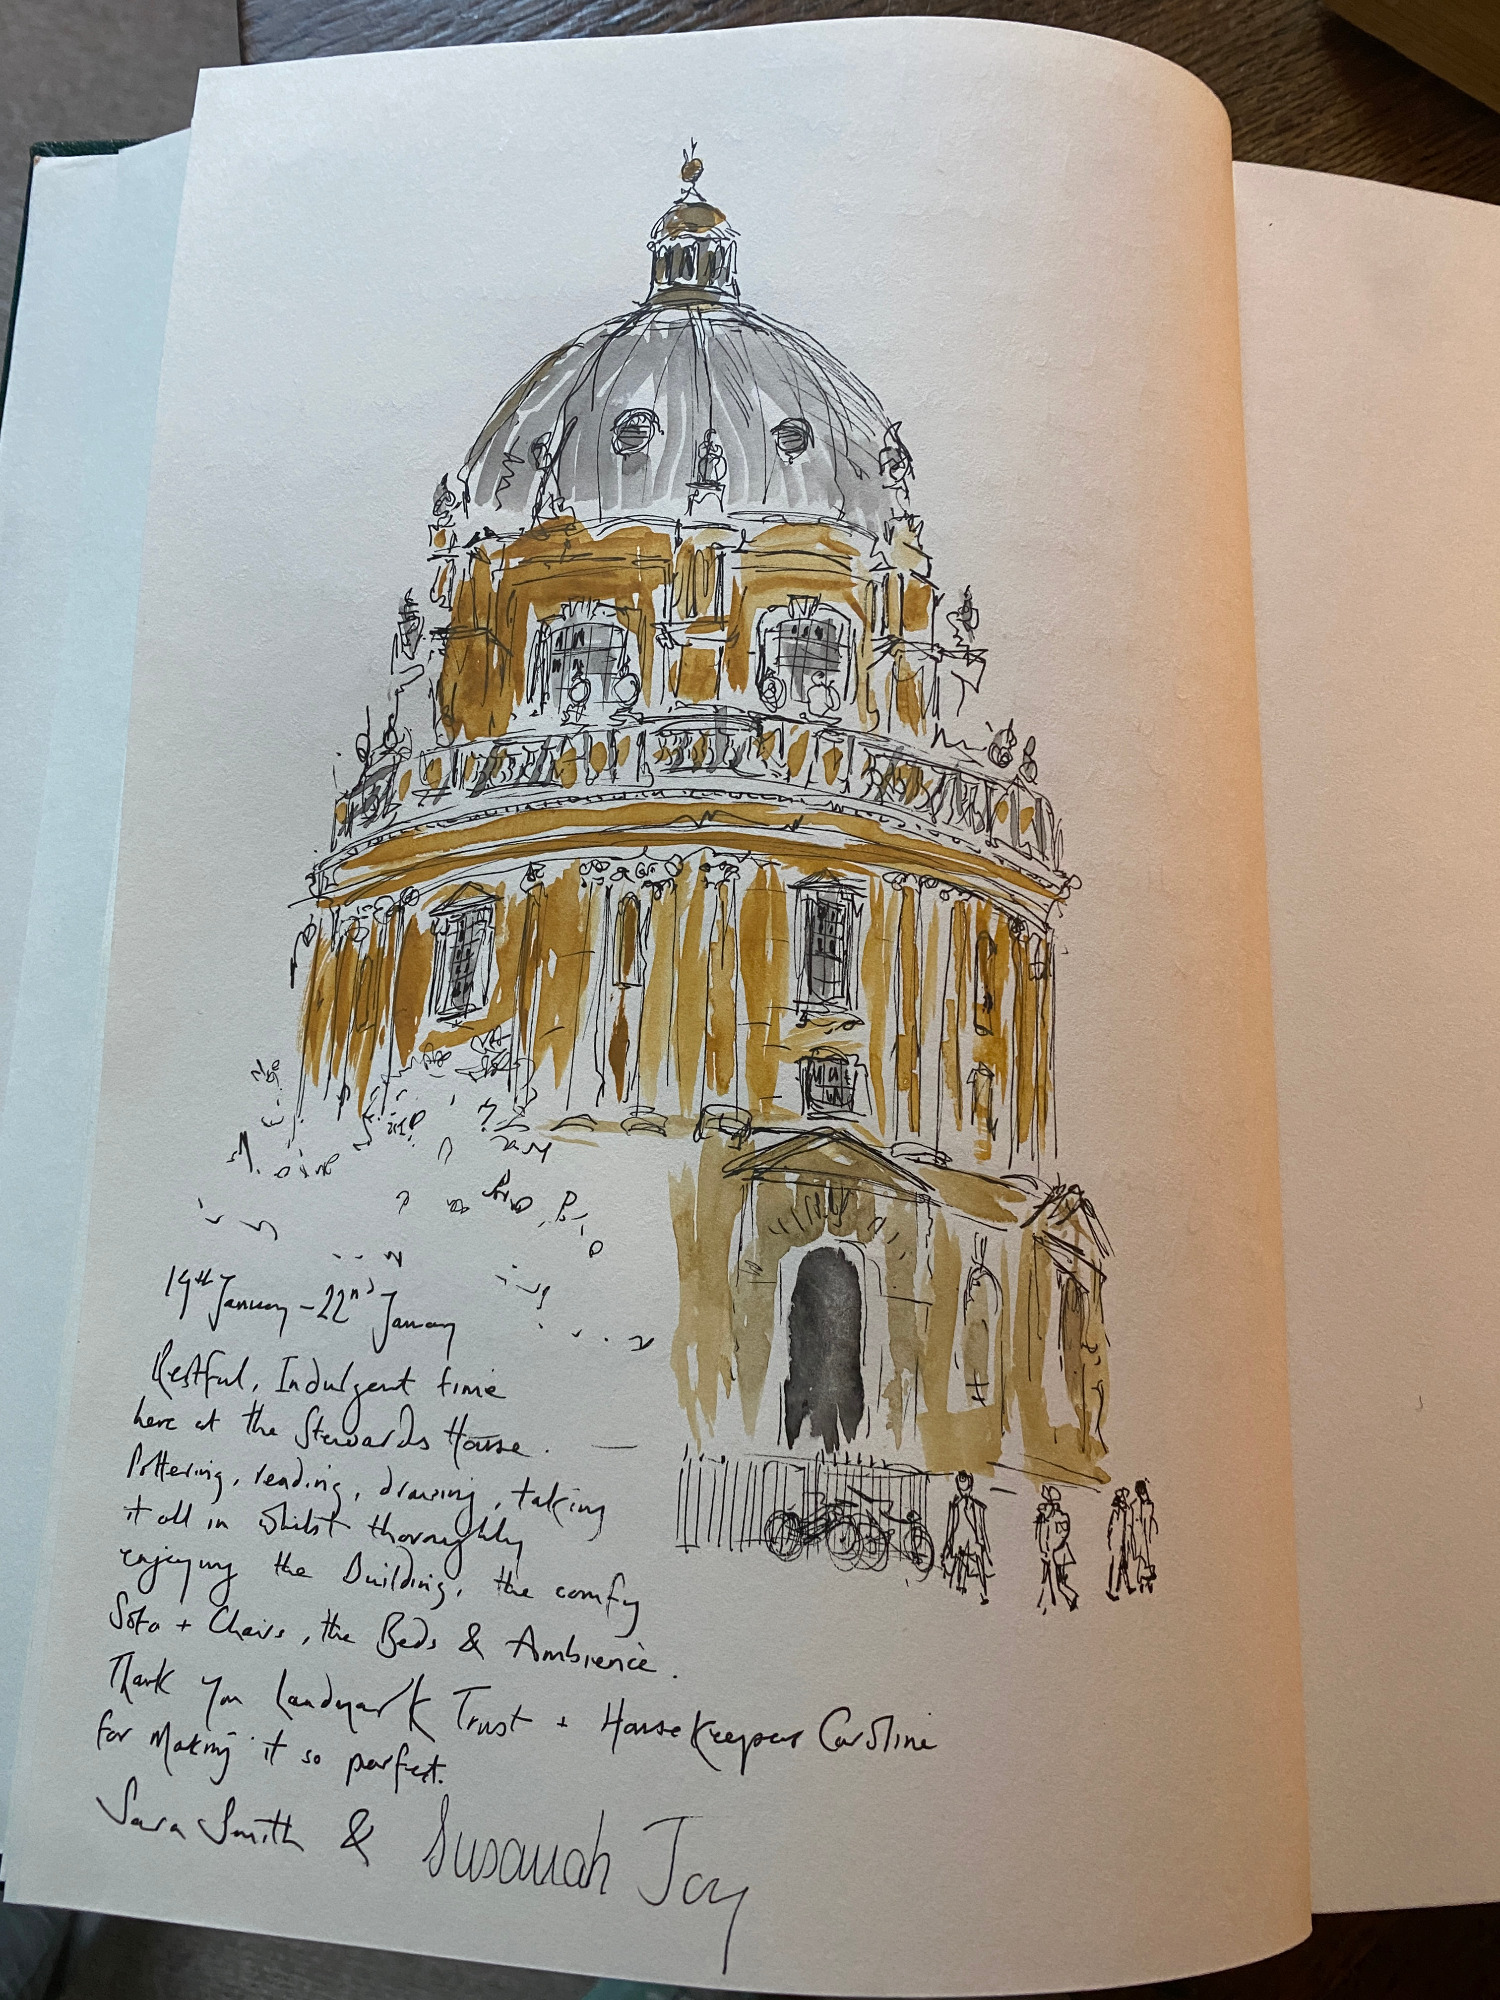 19th January - 22nd January
Restful, Indulgent time
here at the Stewards House.
Pottering, reading, drawing, taking
it all in whilst thoroughly
enjoying the Building, the comfy
Sofa + Chairs, the Beds & Ambience.
Thank you Landmark Trust + Housekeeper Caroline
for Making it so perfect.
Sara Smith & Susannah Joy